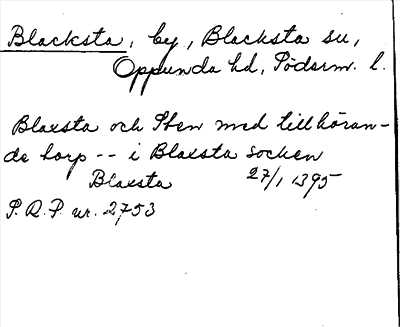 Blacksta, by, Blacksta sn,
Oppunda hd, Söderm. l.
Blaxsta och Sten med tillhöran-
de torp -- i Blaxsta socken
Blaxsta 27/1 1395
S.R.P. nr. 2753